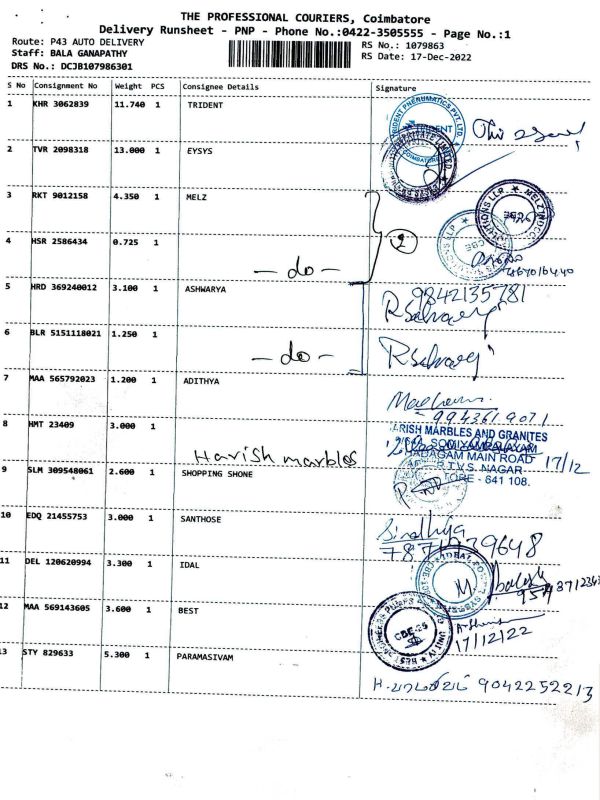 THE PROFESSIONAL COURIERS, Coimbatore
Delivery Runsheet - PNP - Phone No.:0422-3505555 - Page No.:1
Route: P43 AUTO DELIVERY RS No.: 1079863
Staff: BALA GANAPATHY RS Date: 17-Dec-2022
DRS No.: DCJB107986301
S No Consignment No Weight PCS Consignee Details Signature
1 KHR 3062839 11.740 1 TRIDENT
2 TVR 2098318 13.000 1 EYSYS
3 RKT 9012158 4.350 1 MELZ
4 HSR 2586434 0.725 1
- do - 2
5 HRD 369240012 3.100 1 ASHWARYA 9842135781
6 BLR 5151118021 1.250 1
- do -
7 MAA 565792023 1.200 1 ADITHYA
- 9943619071
8 HMT 23409 3.000 1
Harish marbles
ARISH MARBLES AND GRANITES
SOMIYAMPALAYAM
MAIN ROAD 17/12
NAGAR
ORE - 641 108.
9 SLM 309548061 2.600 1 SHOPPING SHONE
10 EDQ 21455753 3.000 1 SANTHOSE Sindhiya
11 DEL 120620994 3.300 1 IDAL
12 MAA 569143605 3.600 1 BEST
17/12/22
13 STY 829633 5.300 1 PARAMASIVAM
9042252213